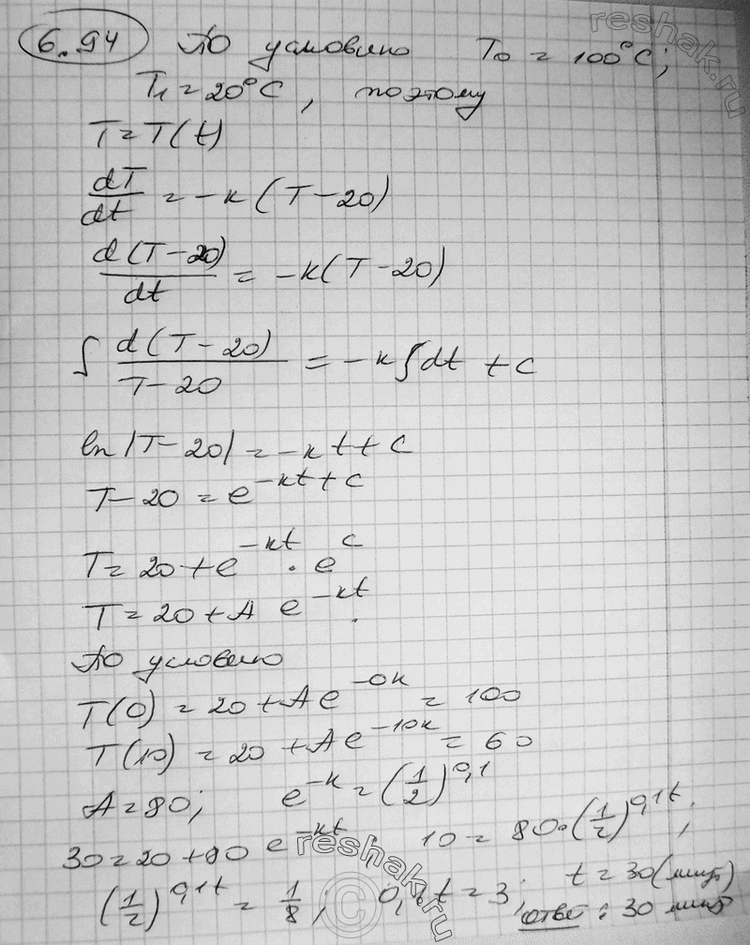 6.94 По условию T₀ = 100°C;
T₁ = 20°C, поэтому
T = T(t)
dT/dt = -k(T-20)
d(T-20)/dt = -k(T-20)
∫ d(T-20)/(T-20) = -k∫dt + C
ln|T-20| = -kt + C
T-20 = e^(-kt+C)
T = 20 + e^(-kt) · e^C
T = 20 + A e^(-kt).
По условию
T(0) = 20 + A e^(-0k) = 100
T(10) = 20 + A e^(-10k) = 60
A = 80; e^(-k) = (1/2)^(0,1)
30 = 20 + 80 e^(-kt); 10 = 80·(1/2)^(0,1t);
(1/2)^(0,1t) = 1/8; 0,1t = 3; t = 30 (минут)
ответ: 30 минут
reshak.ru
reshak.ru
© reshak.ru